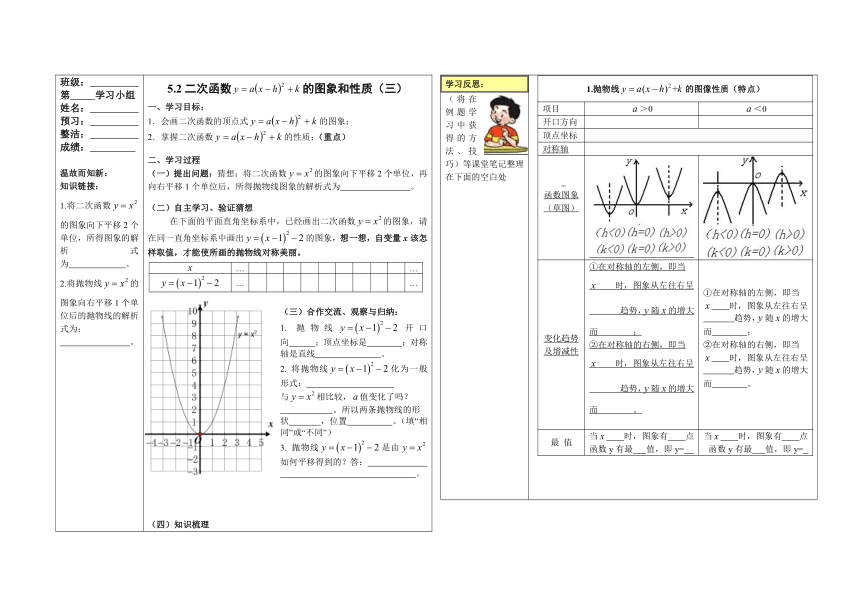 班级：__________
第_____学习小组
姓名：__________
预习：__________
整洁：__________
成绩：_________
温故而知新：
知识链接：
1.将二次函数 y = x²
的图象向下平移 2 个
单位，所得图象的解
析式
为____________。
2.将抛物线 y = x² 的
图象向右平移 1 个单
位后的抛物线的解析
式为：
_______________。
5.2 二次函数 y = a(x − h)² + k 的图象和性质（三）
一、学习目标：
1．会画二次函数的顶点式 y = a(x − h)² + k 的图象；
2．掌握二次函数 y = a(x − h)² + k 的性质；（重点）
二、学习过程
（一）提出问题：猜想：将二次函数 y = x² 的图象向下平移 2 个单位，再
向右平移 1 个单位后，所得抛物线图象的解析式为_______________。
（二）自主学习、验证猜想
在下面的平面直角坐标系中，已经画出二次函数 y = x² 的图象，请
在同一直角坐标系中画出 y = (x − 1)² − 2 的图象，想一想，自变量 x 该怎
样取值，才能使所画的抛物线对称美丽。
x … …
y = (x − 1)² − 2 … …
y
10
9
8
7
6
5
4
3
2
1
y = x²
x
−4 −3 −2 −1 O 1 2 3 4 5
−1
−2
−3
（三）合作交流、观察与归纳：
1. 抛物线 y = (x − 1)² − 2 开口
向______；顶点坐标是________；对称
轴是直线______________。
2. 将抛物线 y = (x − 1)² − 2 化为一般
形式：___________________
与 y = x² 相比较，a 值变化了吗？
__________，所以两条抛物线的形
状_______，位置__________。（填“相
同”或“不同”）
3. 抛物线 y = (x − 1)² − 2 是由 y = x²
如何平移得到的？答：_____________
______________________________。
（四）知识梳理
学习反思：
（将在
例题学
习中获
得的方
法、技
巧）等课堂笔记整理
在下面的空白处
1.抛物线 y = a(x − h)² + k 的图像性质（特点）
项目 a >0 a <0
开口方向
顶点坐标
对称轴
函数图象
（草图）
y
o
x
(h<0) (h=0) (h>0)
(k<0) (k=0) (k>0)
y
o
x
(h<0) (h=0) (h>0)
(k<0) (k=0) (k>0)
变化趋势
及增减性
①在对称轴的左侧，即当
x____时，图象从左往右呈
______趋势，y 随 x 的增大
而________；
②在对称轴的右侧，即当
x____时，图象从左往右呈
______趋势，y 随 x 的增大
而________。
①在对称轴的左侧，即当
x____时，图象从左往右呈
_______趋势，y 随 x 的增大
而________；
②在对称轴的右侧，即当
x____时，图象从左往右呈
_______趋势，y 随 x 的增大
而________。
最 值
当 x____时，图象有____点
函数 y 有最___值，即 y=__
当 x____时，图象有____点
函数 y 有最___值，即 y=_